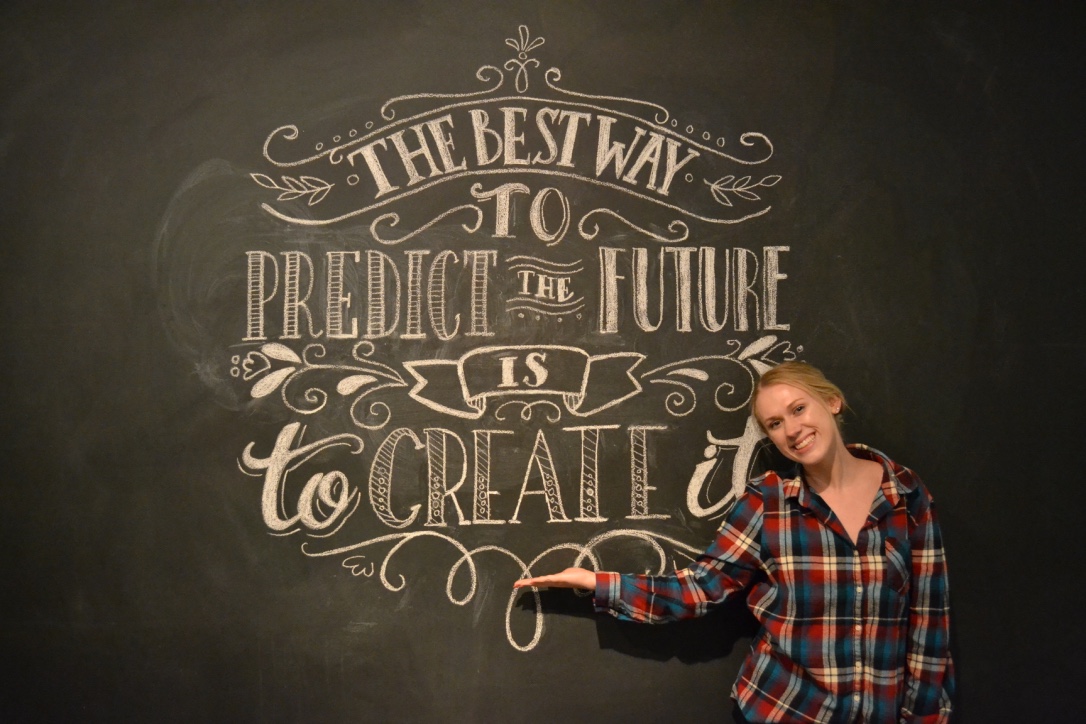 THE BEST WAY
TO
PREDICT THE FUTURE
IS
to CREATE it